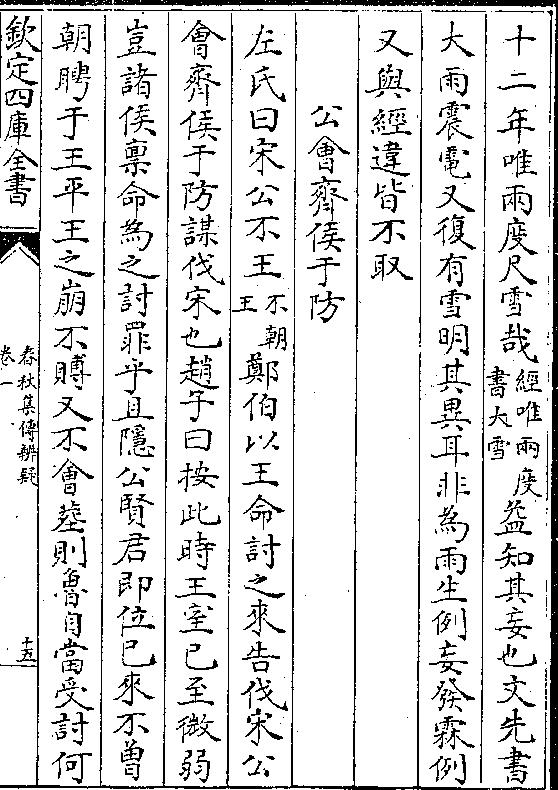 十二年唯兩度尺雪哉經唯兩度書大雪益知其妄也文先書
大雨震電又復有雪明其異耳非為雨生例妄發霖例
又與經違皆不取
公會齊侯于防
左氏曰宋公不王不朝王鄭伯以王命討之來告伐宋公
會齊侯于防謀伐宋也趙子曰按此時王室已至微弱
豈諸侯稟命為之討罪乎且隱公賢君即位已來不曾
朝聘于王平王之崩不賻又不會塟則魯自當受討何
欽定四庫全書
春秋集傳辨疑
卷一
十五